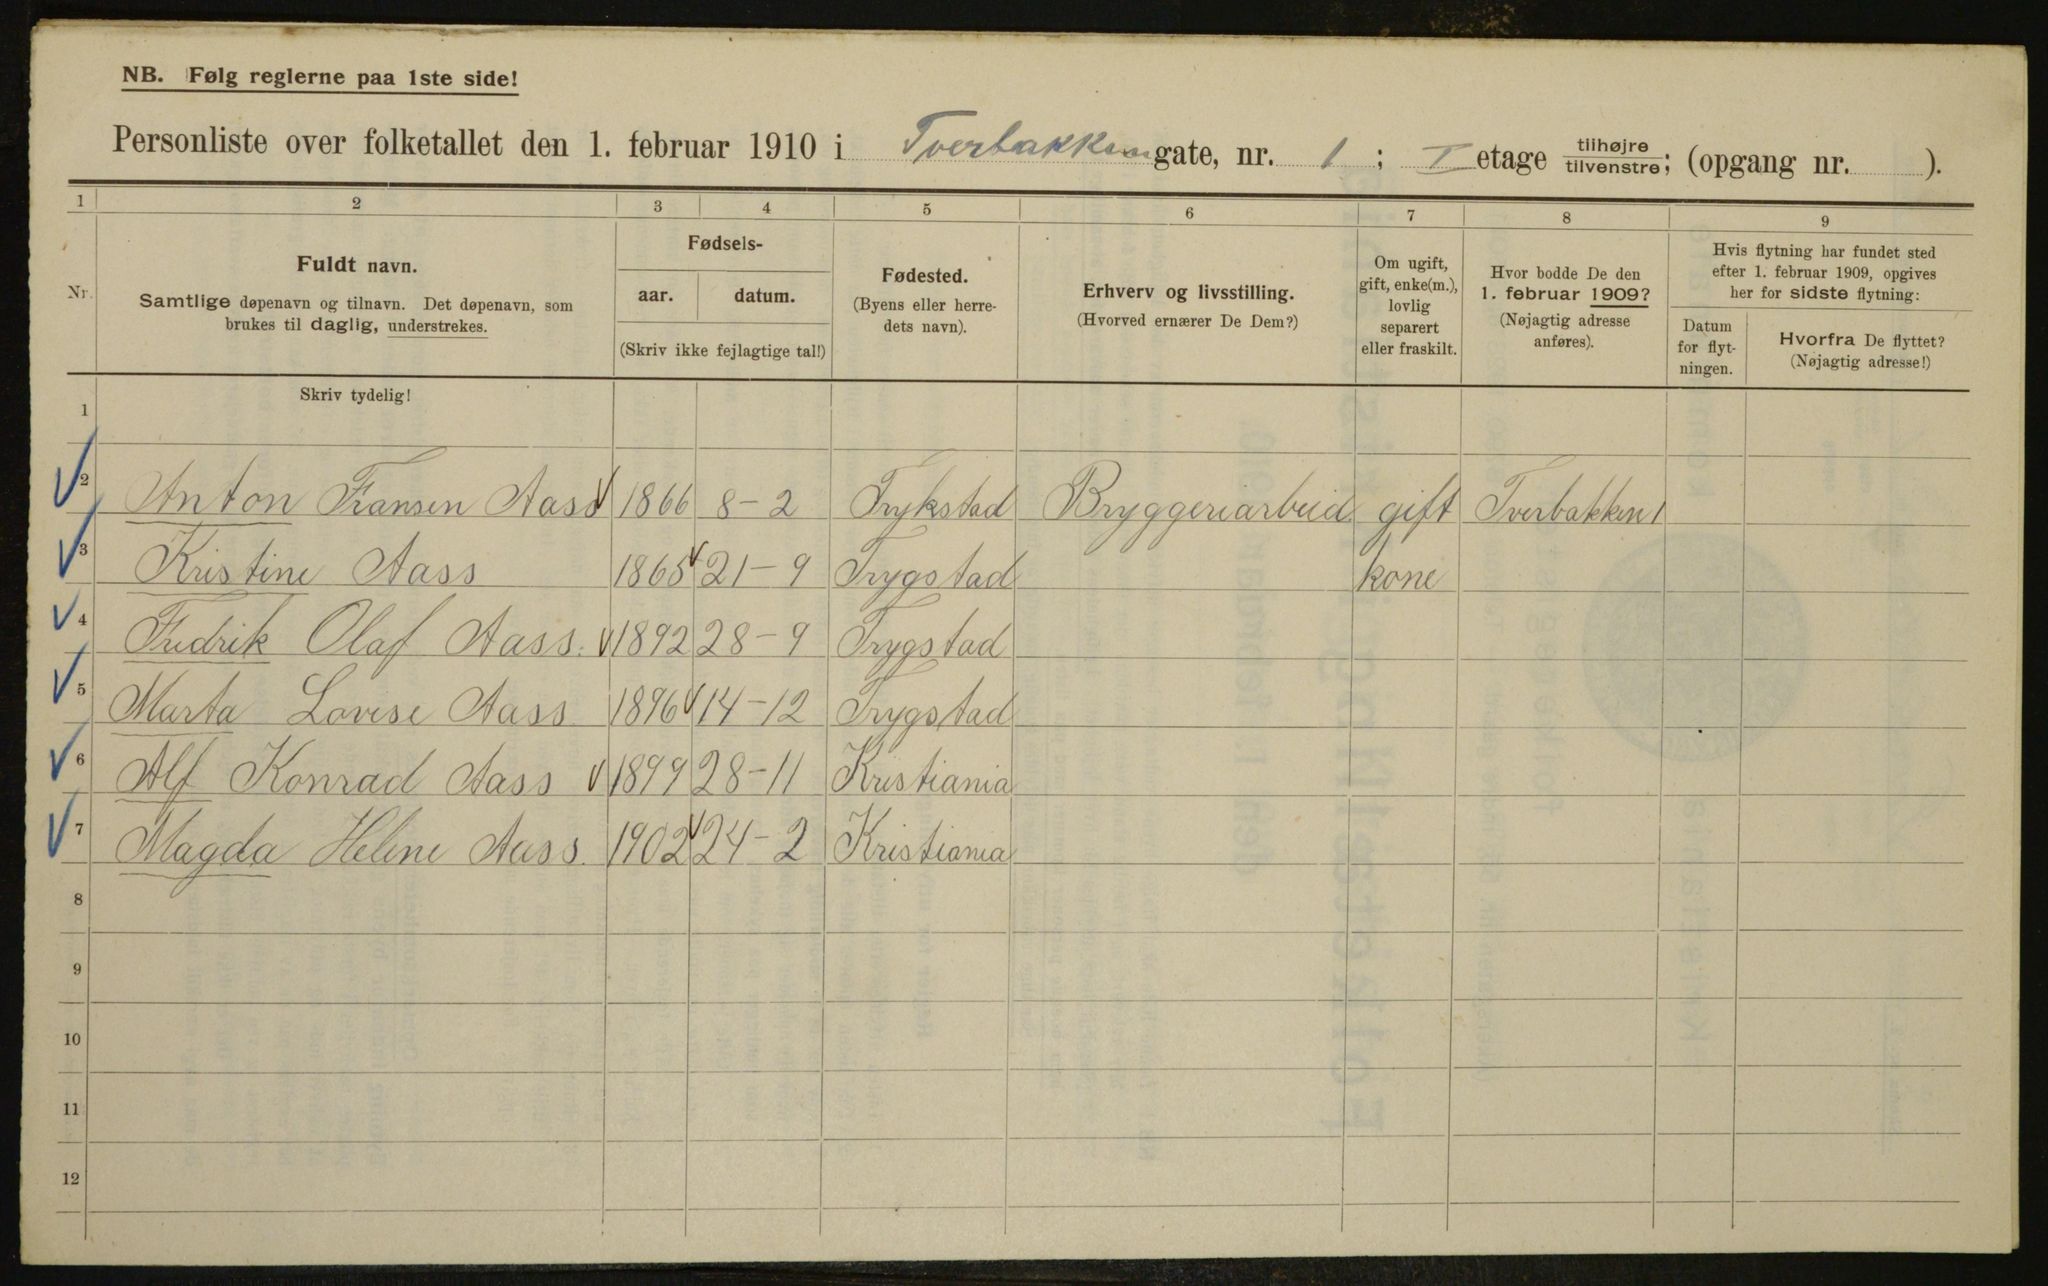 NB. Følg reglerne paa 1ste side!
Personliste over folketallet den 1. februar 1910 i Tverbakken gate, nr. 1; I etage tilhøjre tilvenstre; (opgang nr. ).
1 2 3 4 5 6 7 8 9
Nr.
Fuldt navn.
Samtlige døpenavn og tilnavn. Det døpenavn, som
brukes til daglig, understrekes.
Fødsels-
aar. datum.
(Skriv ikke fejlagtige tal!)
Fødested.
(Byens eller herre-
dets navn).
Erhverv og livsstilling.
(Hvorved ernærer De Dem?)
Om ugift,
gift, enke(m.),
lovlig
separert
eller fraskilt.
Hvor bodde De den
1. februar 1909?
(Nøjagtig adresse
anføres).
Hvis flytning har fundet sted
efter 1. februar 1909, opgives
her for sidste flytning:
Datum
for flyt-
ningen.
Hvorfra De flyttet?
(Nøjagtig adresse!)
Skriv tydelig!
1
2 Anton Fransen Aass 1866 8-2 Trykstad Bryggeriarbeid. gift Tverbakken 1
3 Kristine Aass 1865 21-9 Trygstad kone
4 Fredrik Olaf Aass. 1892 28-9 Trygstad
5 Marta Lovise Aass 1896 14-12 Trygstad
6 Alf Konrad Aass 1899 28-11 Kristiania
7 Magda Helene Aass. 1902 24-2 Kristiania
8
9
10
11
12